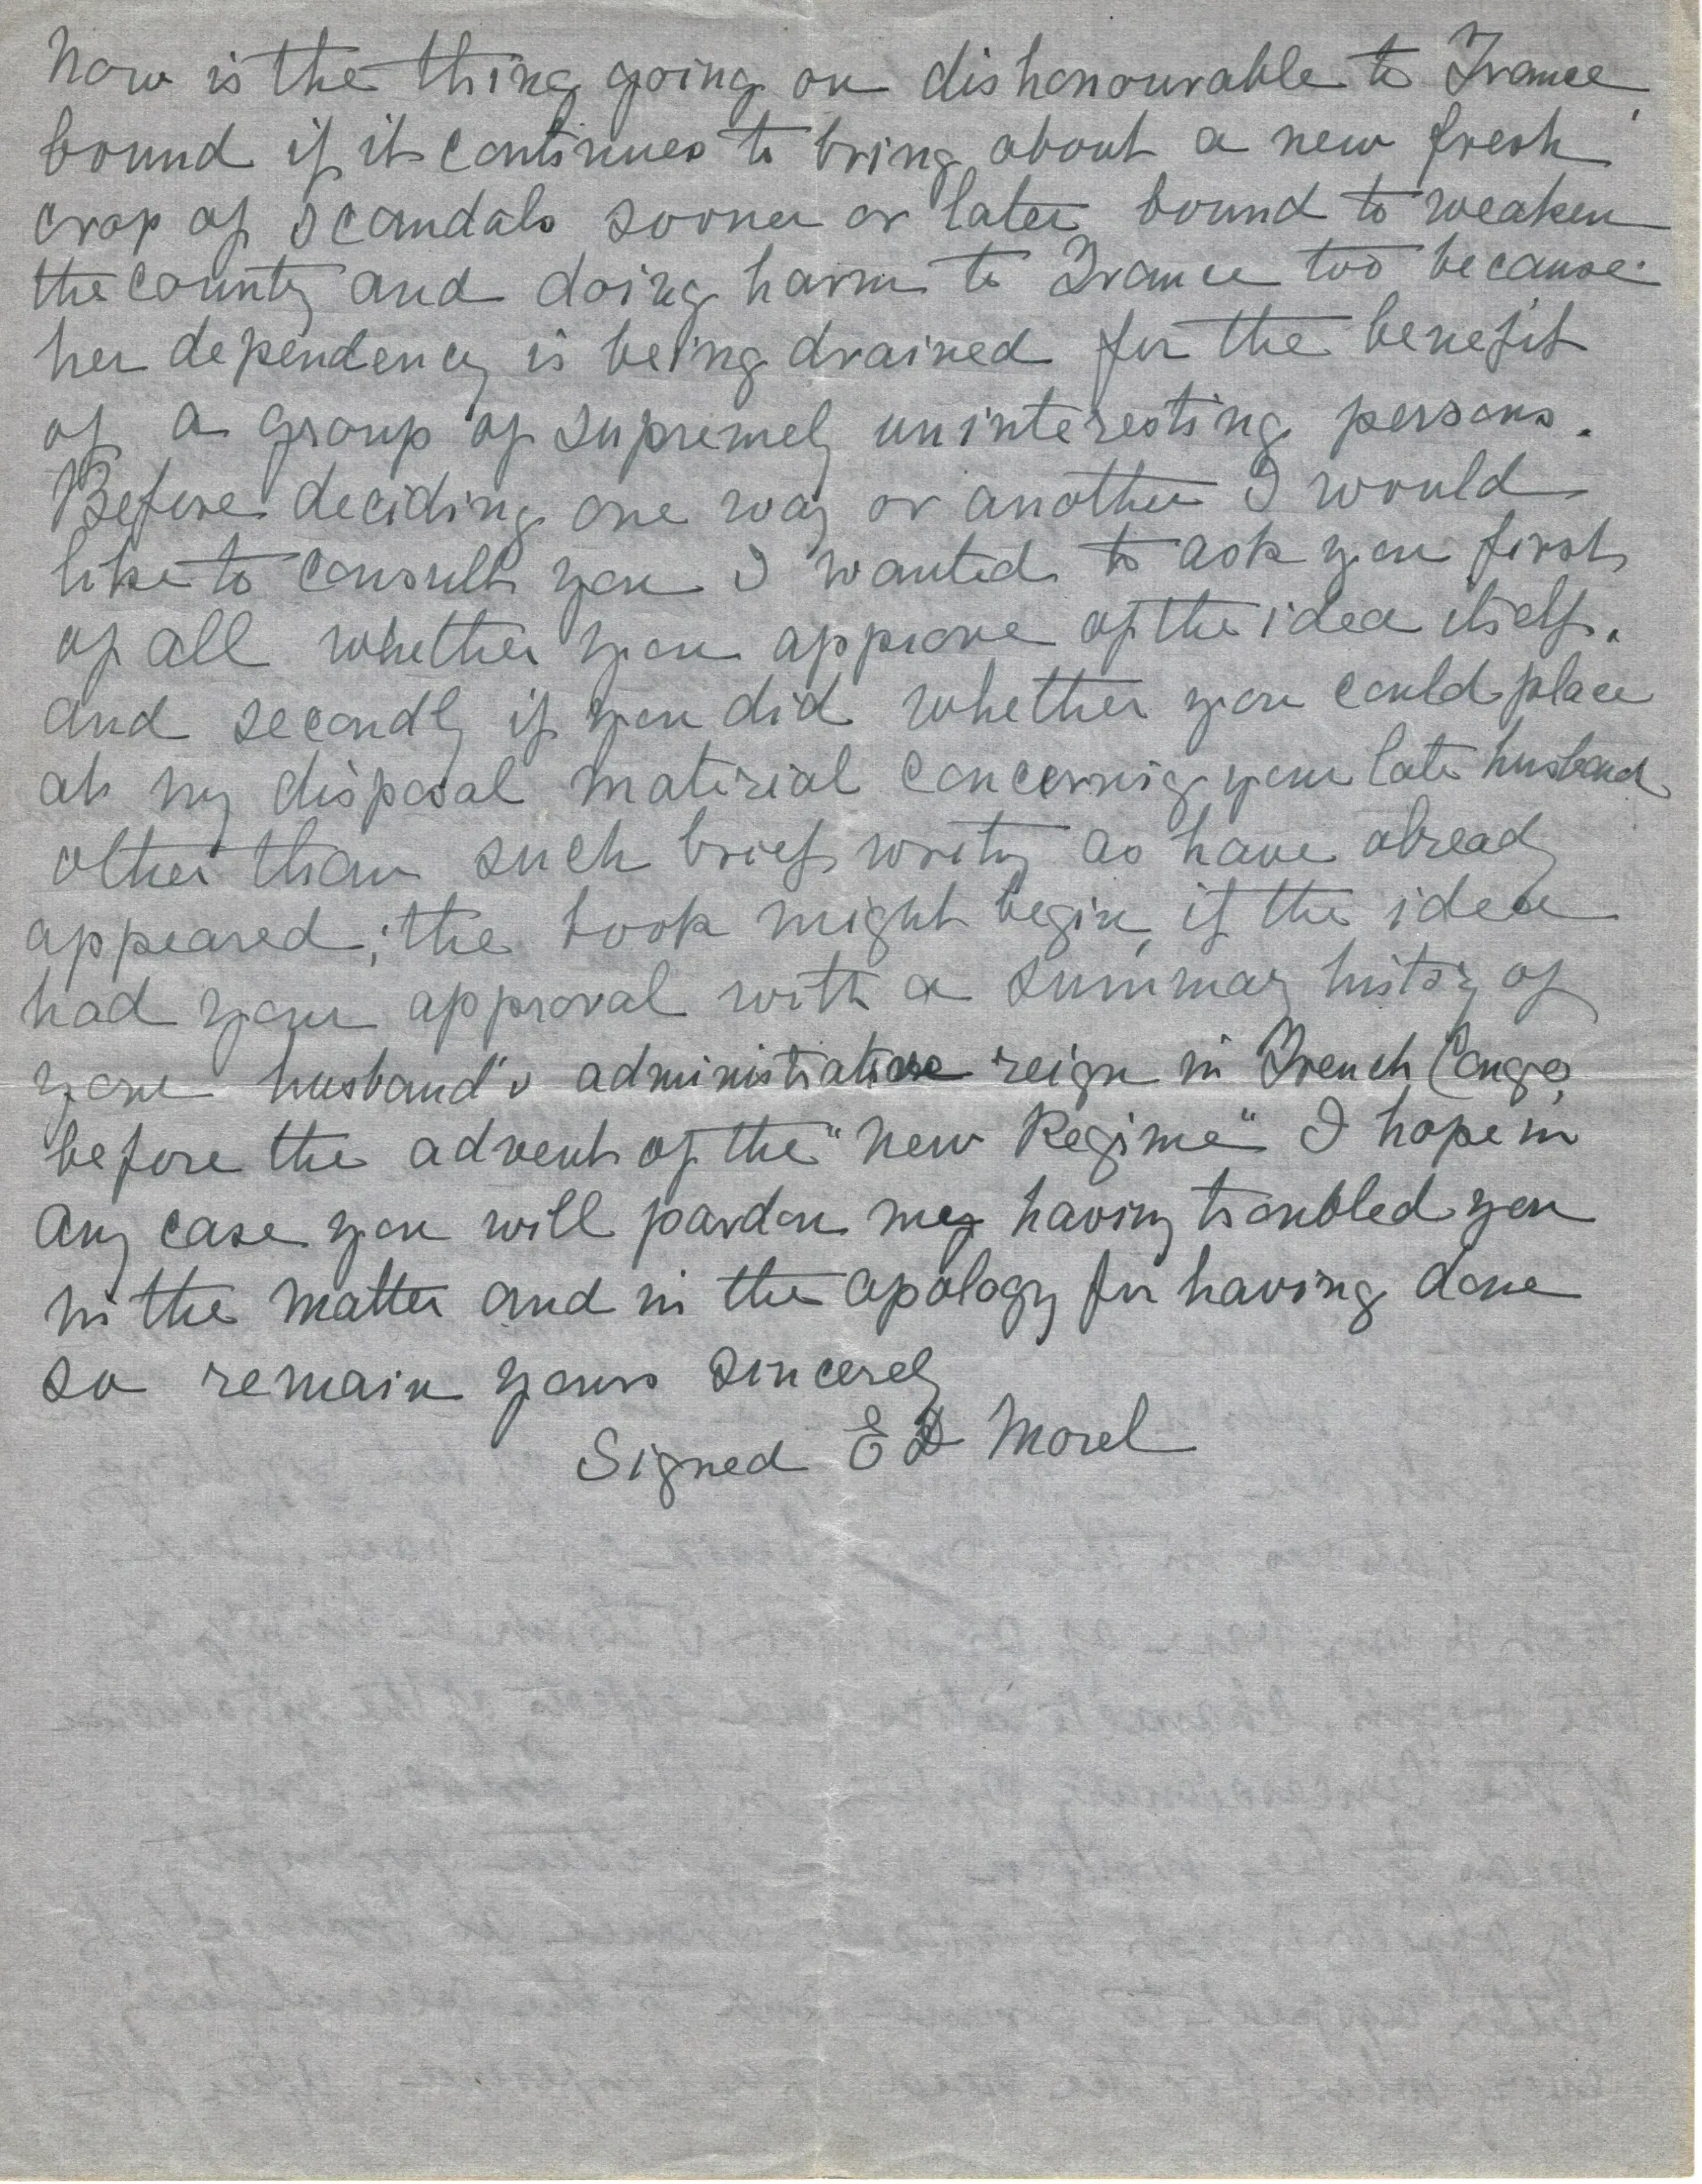 Now is the thing going on dishonourable to France,
bound if it continues to bring about a new fresh
crop of scandals sooner or later bound to weaken
the county and doing harm to France too because
her dependency is being drained for the benefit
of a group of supremely uninteresting persons.
Before deciding one way or another I would
like to consult you I wanted to ask you first
of all whether you approve of the idea itself.
and secondly if you did whether you could place
at my disposal material concernig your late husband
other than such brief writy as have already
appeared; the book might begin, if the idea
had your approval with a summary history of
your husband's administrative reign in French Congo
before the advent of the "New Regime" I hope in
any case you will pardon my having troubled you
in the matter and in the apology for having done
so remain yours sincerely
Signed E D Morel